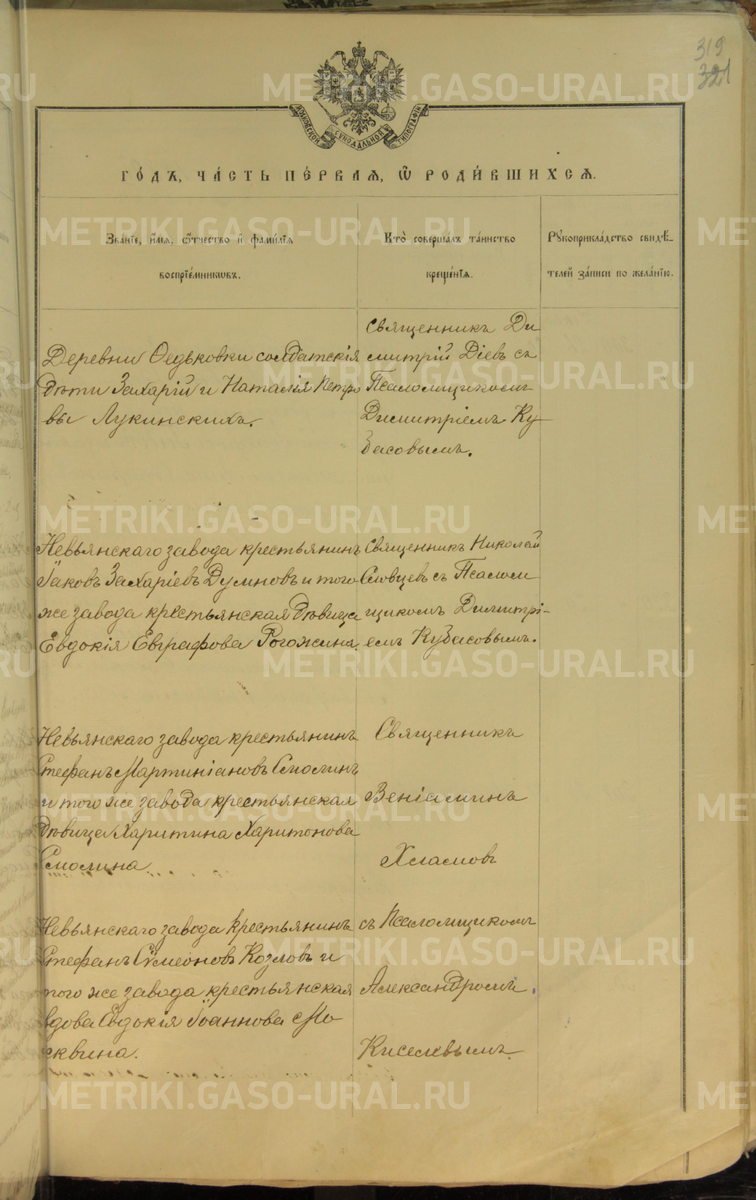 319
321
МОСКОВСКОЙ СѴНОДАЛЬНОЙ ТИПОГРАФІИ
ГОДЪ, ЧАСТЬ ПЕРВАЯ, Ѡ РОДИВШИХСЯ.
Званіе, имя, ѻтчество и фамилія
воспріемниковъ.
Кто совершалъ таинство
крещенія.
Рукоприкладство свидѣ-
телей записи по желанію.
Деревни Ѳедьковки солдатскія
дѣти Захарій и Наталія Петро
вы Лукинскихъ.
Священникъ Ди
митрій Діевъ съ
Псаломщикомъ
Димитріемъ Ку
басовымъ.
Невьянскаго завода крестьянинъ
Іаковъ Захаріевъ Думновъ и того
же завода крестьянская дѣвица
Евдокія Евграфова Рогожина
Священникъ Николай
Словцевъ съ Псалом
щикомъ Димитрі-
емъ Кубасовымъ.
Невьянскаго завода крестьянинъ
Стефанъ Мартиніановъ Смолинъ
и того же завода крестьянская
дѣвица Харитина Харитонова
Смолина
Священникъ
Веніаминъ
Хламовъ
Невьянскаго завода крестьянинъ
Стефанъ Сѵмеоновъ Козловъ и
того же завода крестьянская
вдова Евдокія Іоаннова Мо
сквина.
съ Псаломщикомъ
Александромъ
Киселевымъ
METRIKI.GASO-URAL.RU
METRIKI.GASO-URAL.RU
METRIKI.GASO-URAL.RU
METRIKI.GASO-URAL.RU
METRIKI.GASO-URAL.RU
METRIKI.GASO-URAL.RU
METRIKI.GASO-URAL.RU
METRIKI.GASO-URAL.RU